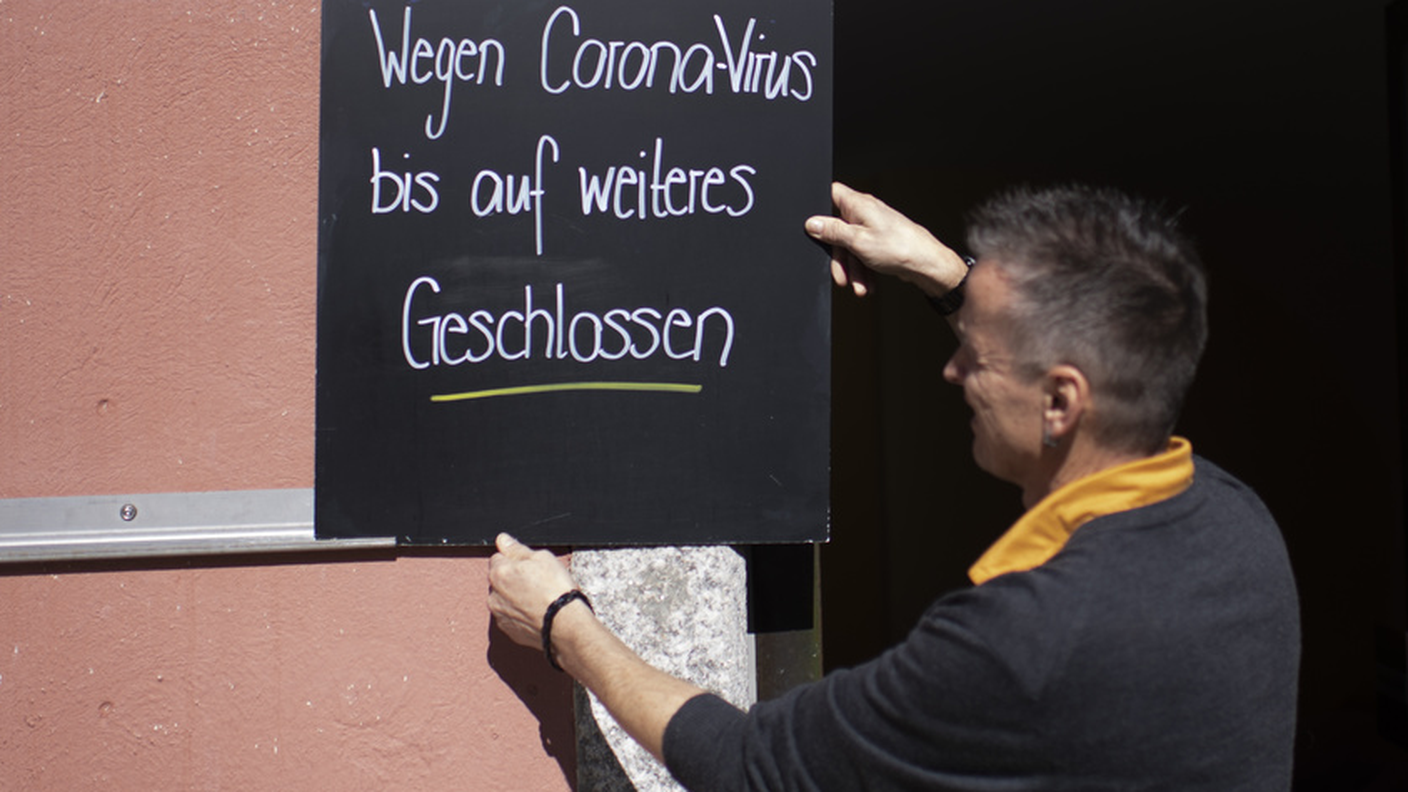 Wegen Corona-Virus
bis auf weiteres
Geschlossen